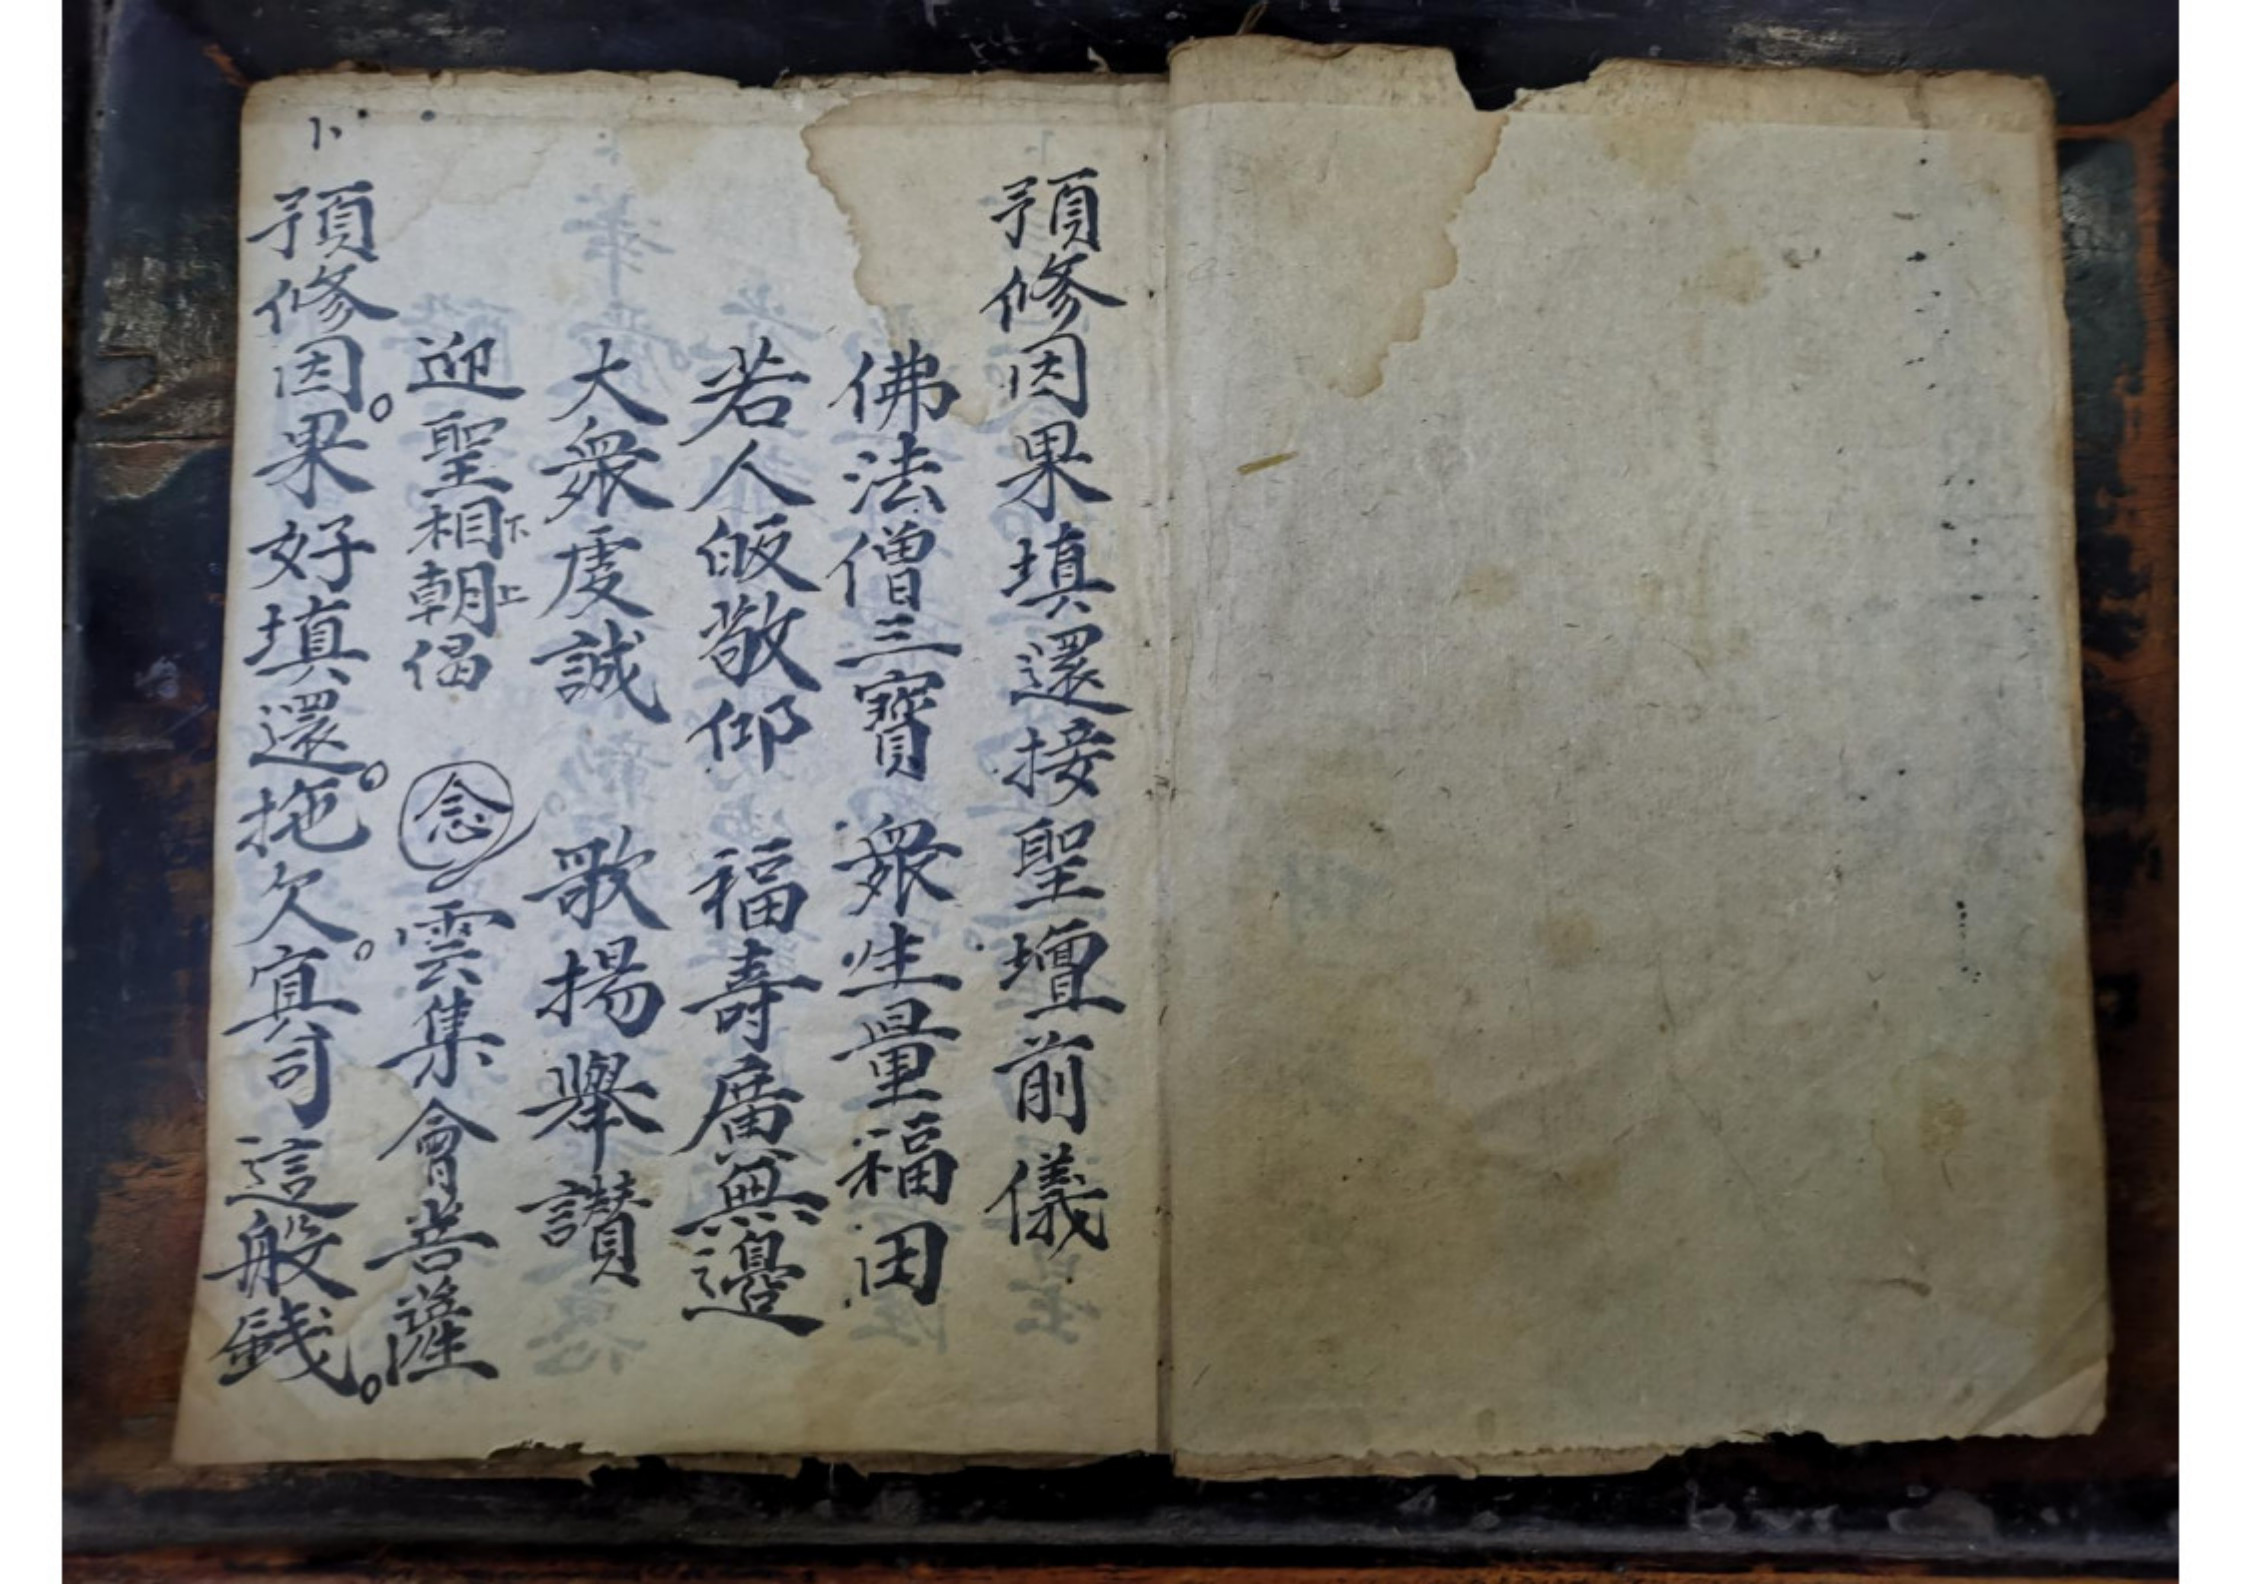 預修因果填還接聖壇前儀
佛法僧三寶　眾生量福田
若人皈敬仰　福壽廣無邊
大眾虔誠　歌揚舉讚
迎聖相下朝上偈　念　雲集會菩薩
預修因。果好填還。拖欠。冥司這般錢。